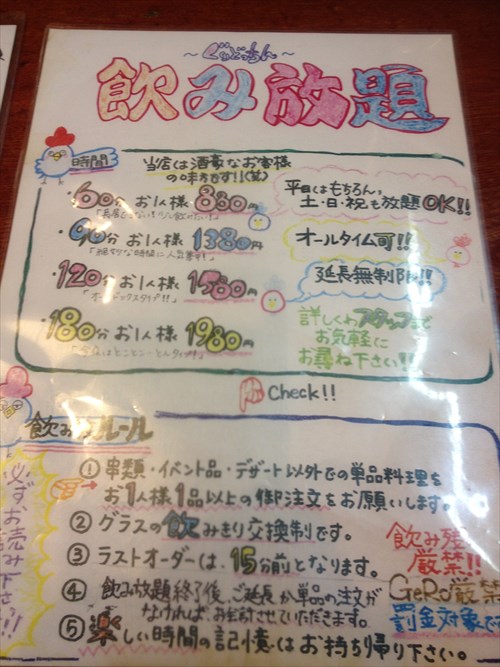 飲み放題
時間
当店は酒豪なお客様
の味方です!!(笑)
・60分 お1人様 880円
・90分 お1人様 1380円
・120分 お1人様 1580円
・180分 お1人様 1980円
平日はもちろん、
土・日・祝も放題OK!!
オールタイム可!!
延長無制限!!
詳しくわスタッフまで
お気軽に
お尋ね下さい!!
Check!!
飲み放ルール
必ずお読み下さい!!
① 串類・イベント品・デザート以外での単品料理を
お1人様1品以上の御注文をお願いします。
② グラスの飲みきり交換制です。
③ ラストオーダーは、15分前となります。
④ 飲み放題終了後、ご延長か単品の注文が
なければ、お会計させていただきます。
⑤ 楽しい時間の記憶はお持ち帰り下さい。
飲み残
厳禁!!
GeRo厳禁
罰金対象で